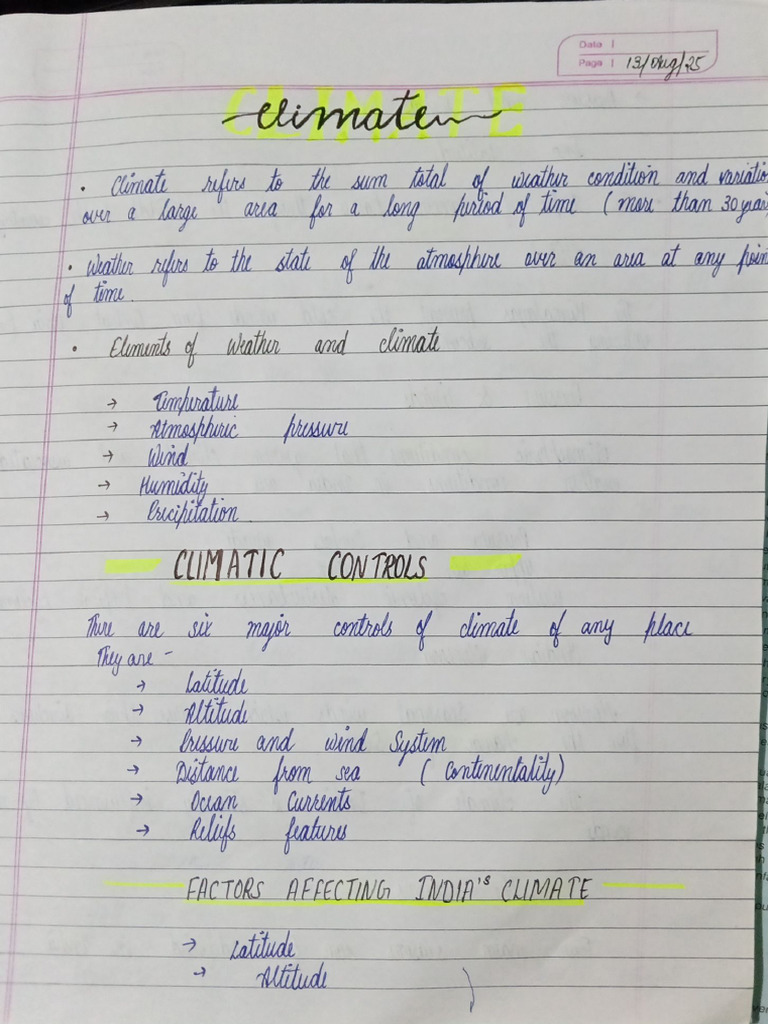 Date |
Page | 13/Aug/25
CLIMATE
climate
• Climate refers to the sum total of weather condition and variatio
over a large area for a long period of time (more than 30 year
• Weather refers to the state of the atmosphere over an area at any poin
of time.
• Elements of weather and climate
→ Temperature
→ Atmospheric pressure
→ Wind
→ Humidity
→ Precipitation
CLIMATIC CONTROLS
There are six major controls of climate of any place
They are -
→ Latitude
→ Altitude
→ Pressure and wind System
→ Distance from sea (Continentality)
→ Ocean Currents
→ Reliefs features
FACTORS AFFECTING INDIA'S CLIMATE
→ Latitude
→ Altitude